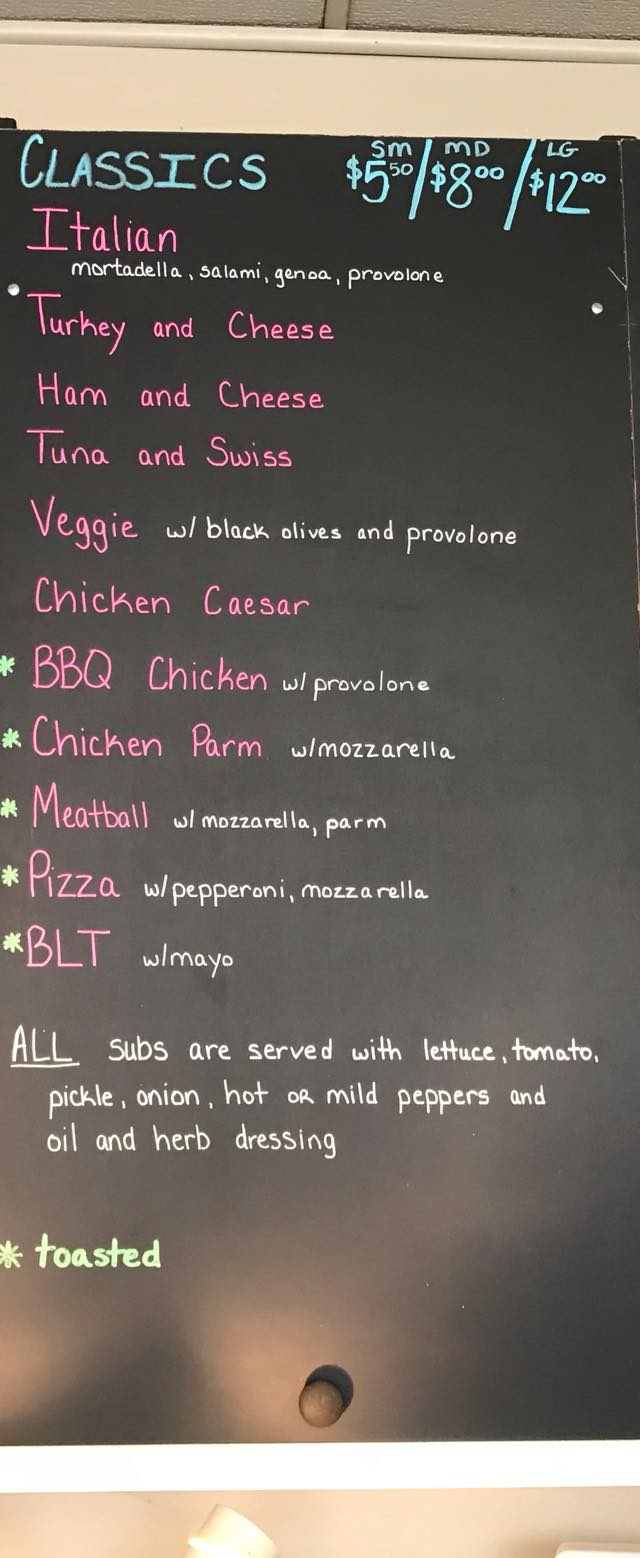 CLASSICS SM $5.50 / MD $8.00 / LG $12.00
Italian
mortadella, salami, genoa, provolone
Turkey and Cheese
Ham and Cheese
Tuna and Swiss
Veggie w/ black olives and provolone
Chicken Caesar
* BBQ Chicken w/ provolone
* Chicken Parm w/mozzarella
* Meatball w/ mozzarella, parm
* Pizza w/pepperoni, mozzarella
* BLT w/mayo
ALL subs are served with lettuce, tomato,
pickle, onion, hot OR mild peppers and
oil and herb dressing
* toasted